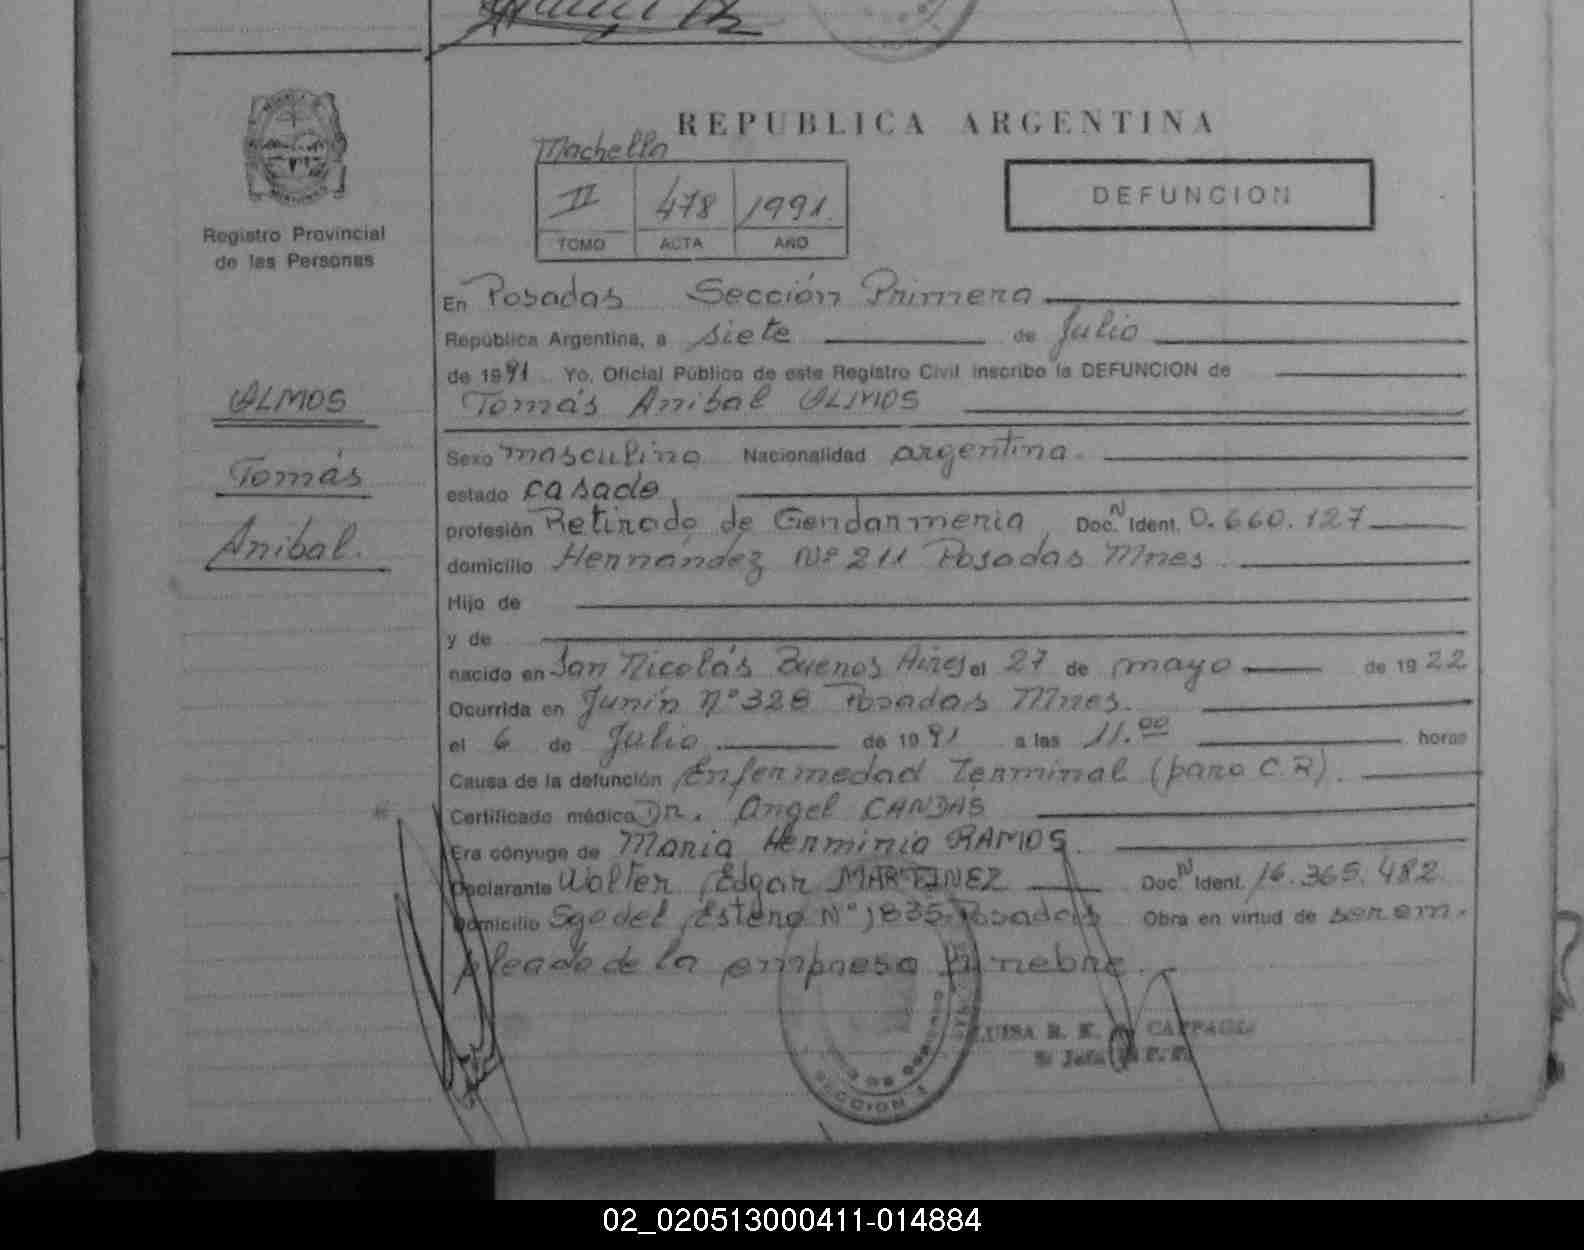 REPUBLICA ARGENTINA
Machella
II 478 1991.
TOMO ACTA AÑO
DEFUNCION
Registro Provincial
de las Personas
OLMOS
Tomás
Anibal.
En Posadas Sección Primera
República Argentina, a siete de Julio
de 1991 Yo, Oficial Público de este Registro Civil inscribo la DEFUNCION de
Tomás Anibal OLMOS
Sexo masculino Nacionalidad argentina.
estado casado
profesión Retirado de Gendarmeria Doc. N Ident. 0.660.127
domicilio Hernández Nº 211 Posadas Mnes
Hijo de
y de
nacido en San Nicolás Buenos Aires el 27 de mayo de 1922
Ocurrida en Junín Nº 328 Posadas Mnes.
el 6 de Julio de 1991 a las 11.00 horas
Causa de la defunción Enfermedad Terminal (paro C.R).
Certificado médico Dr. Angel CANDAS
Era cónyuge de Maria Herminia RAMOS.
Declarante Walter Edgar MARTINEZ Doc. N Ident. 16.365.482
Domicilio Sgo del Estero Nº 1835 Posadas Obra en virtud de ser em-
pleado de la empresa Funebre.
LUISA R. E.
SECCION 1
02_020513000411-014884